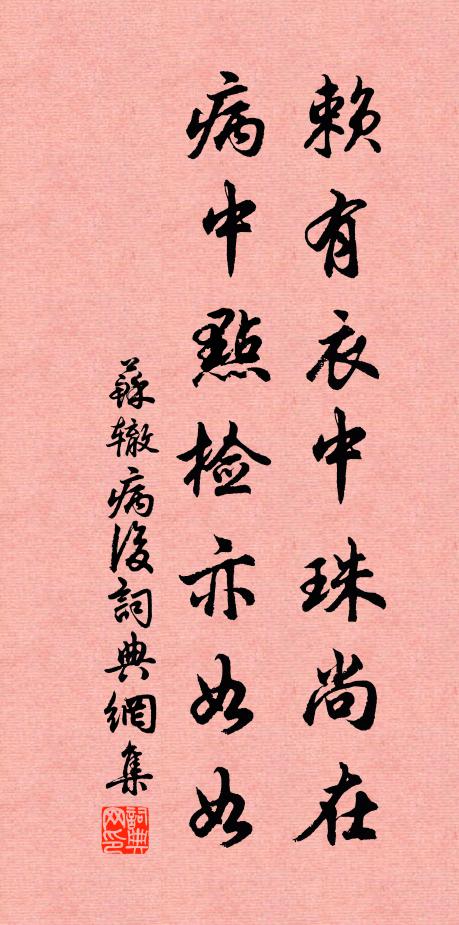 賴有衣中珠尚在
病中點检亦如如
蘇辙病後詞典網集
詞典网印